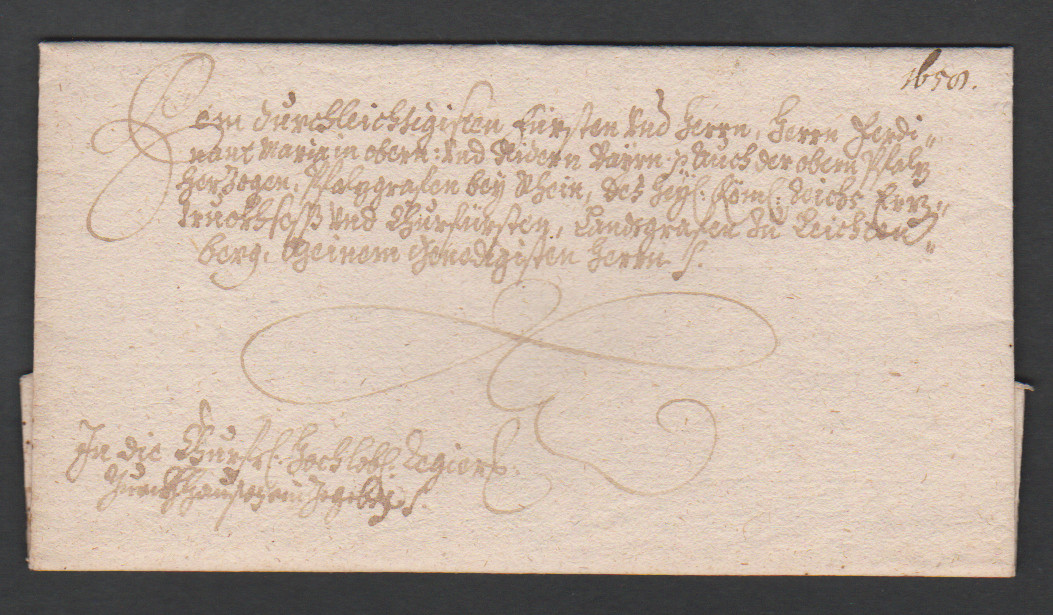 1658.
Dem Durchleichtigisten Fürsten Und Herrn, Herrn Ferdi„
nant Maria in obern: Und Nidern Bayrn p Auch der obern Pfalz
Herzogen, Pfalzgrafen bey Rhein, des Heyl: Röm: Reichs Erz„
truckhseß Und Churfürsten, Landtgrafen Zu Leichten„
berg, Meinem Genedigisten Herrn
In die Churfrl: Hochlobl: Regier: